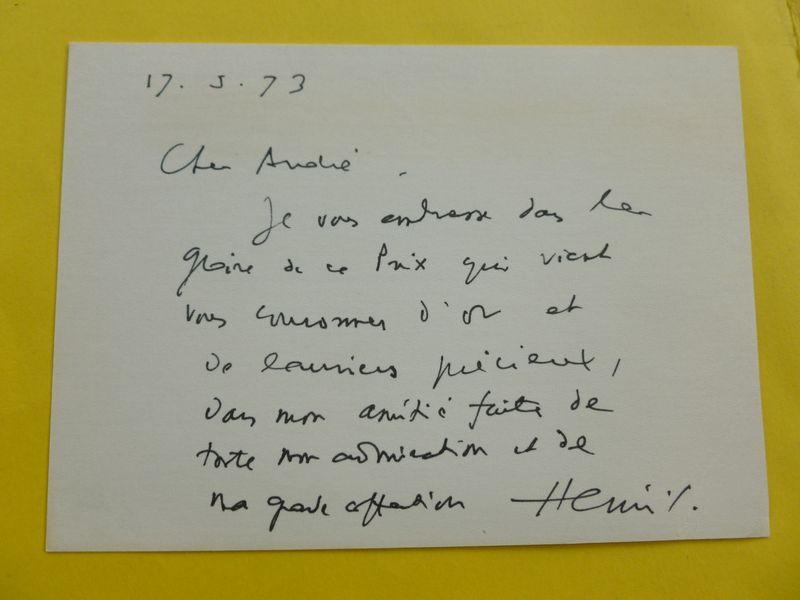 17. 5. 73
Cher André,
Je vous embrasse dans la
gloire de ce Prix qui vient
vous couronner d'or et
de lauriers précieux,
dans mon amitié faite de
toute mon admiration et de
ma grande affection Henri